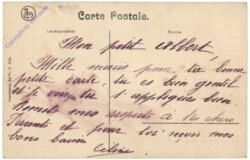 Carte Postale.
Correspondance
Mon petit Albert,
Mille mercis pour ta bonne
petite carte, tu es bien gentil
et je vois que tu t'appliques bien.
Remets mes respects à ta chère
Tante et pour toi reçois mes
bons baisers
Céline